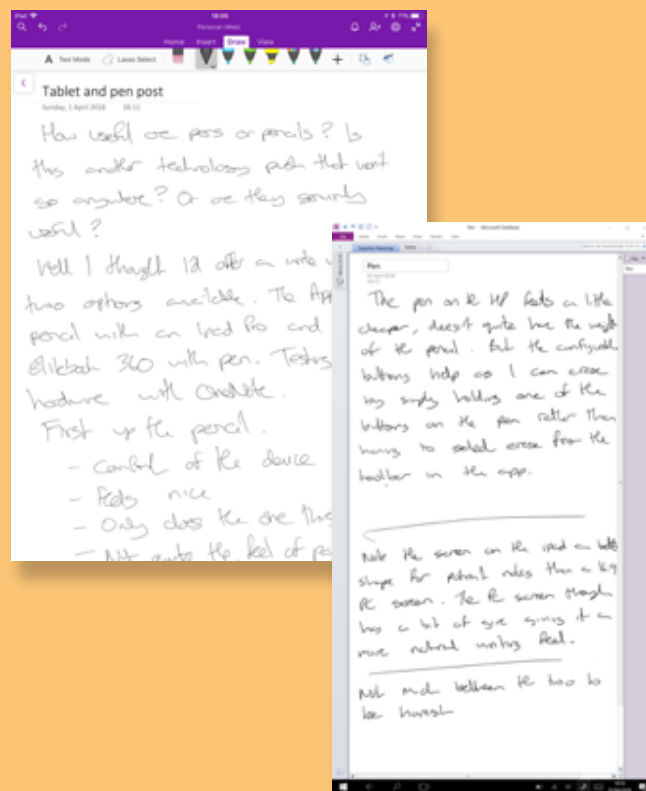 iPad
18:05
71%
Personal (Web)
Home Insert Draw View
Text Mode
Lasso Select
Tablet and pen post
Sunday, 1 April 2018 18:11
How useful are pens or pencils? Is
this another technology push that won't
go anywhere? Or are they genuinely
useful?
Well I thought I'd offer a write
two options available. The App
pencil with an ipad Pro and
Elitebook 360 with pen. Testing
hardware with OneNote.
First up the pencil.
- Comfort of the device
- Feels nice
- Only does the one thing
- Not quite the feel of
Pen - Microsoft OneNote
Pen
The pen on the HP feels a little
cheaper, doesn't quite have the weight
of the pencil. But the configurable
buttons help as I can erase
by simply holding one of the
buttons on the pen rather than
having to select erase from the
toolbar in the app.
Note the screen on the ipad a better
shape for portrait notes than a 16:9
PC screen. The PC screen though
has a bit of give giving it a
more natural writing feel.
Not much between the two to
be honest